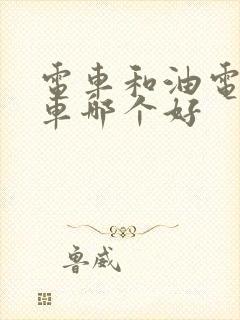 電車和油電
車哪个好
魯威